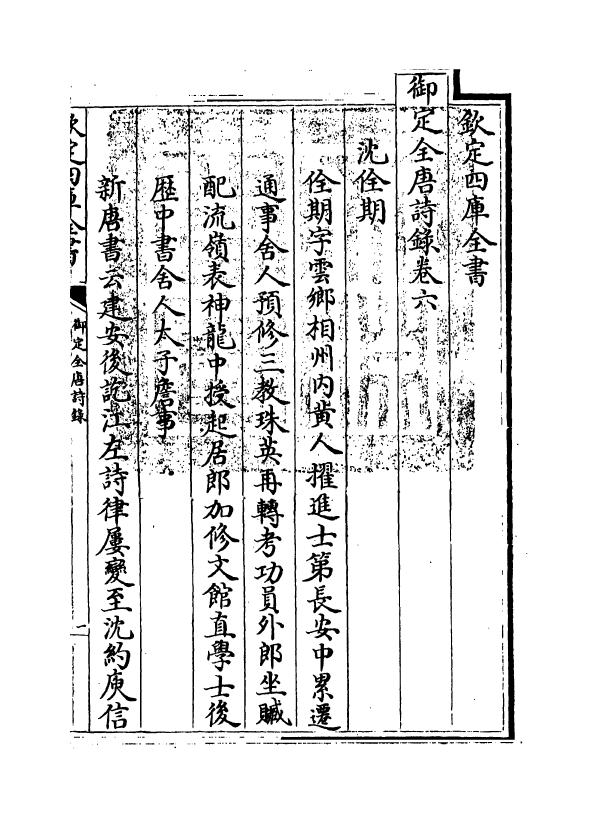 欽定四庫全書
御定全唐詩錄卷六
沈佺期
佺期字雲鄉相州內黄人擢進士第長安中累遷
通事舍人預修三教珠英再轉考功員外郎坐贓
配流嶺表神龍中授起居郎加修文館直學士後
歴中書舍人太子詹事
新唐書云建安後訖江左詩律屢變至沈約庾信
欽定四庫全書
御定全唐詩錄